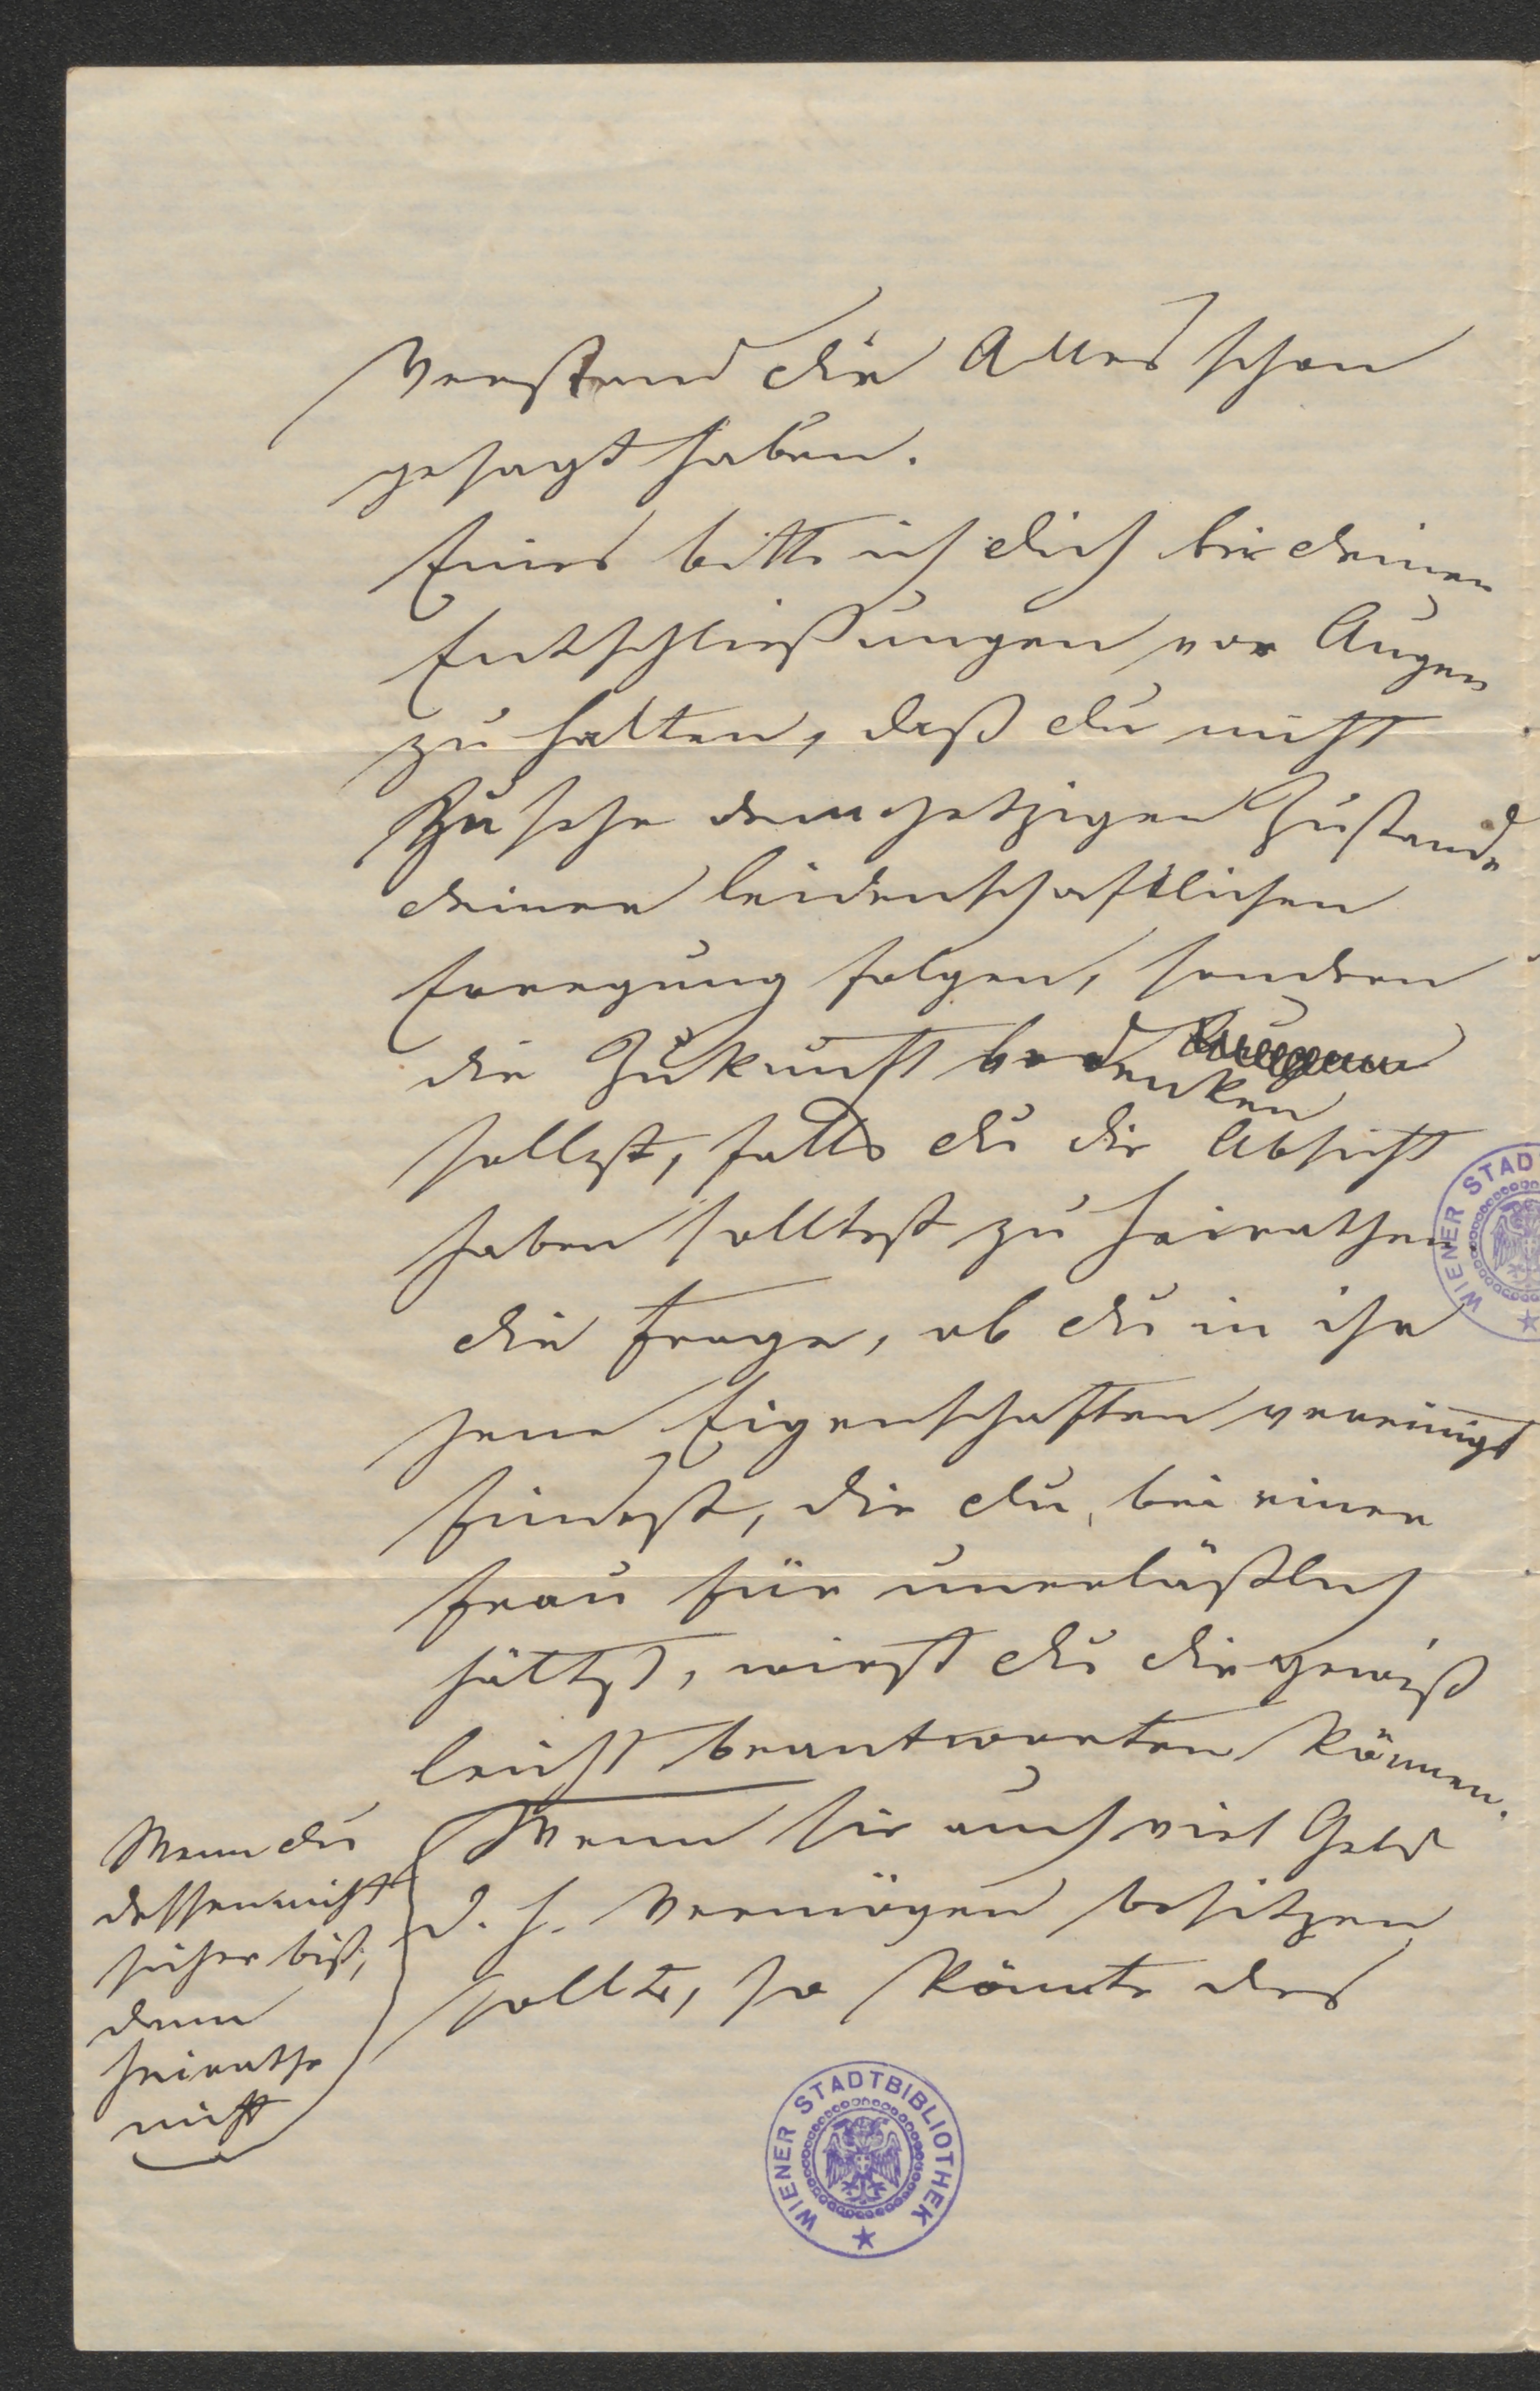 Verstand dir Alles schon
gesagt haben.
Eines bitte ich dich bei deinen
Entschließungen vor Augen
zu halten, daß du nicht
zu sehr dem jetzigen Zustande
deiner leidenschaftlichen
Erregung folgen, sondern
die Zukunft bedenken
sollst, falls du die Absicht
haben solltest zu heirathen.
die Frage, ob du in ihr
jene Eigenschaften vereinigt
findest, die du, bei einer
Frau für unerläßlich
hältst, wirst du dir gewiß
leicht beantworten können.
Wenn du
dessen nicht
sicher bist,
dann
heirathe
nicht
Wenn sie auch viel Geld
d. h. Vermögen besitzen
sollte, so könnte das
WIENER STADTBIBLIOTHEK
WIENER STAD